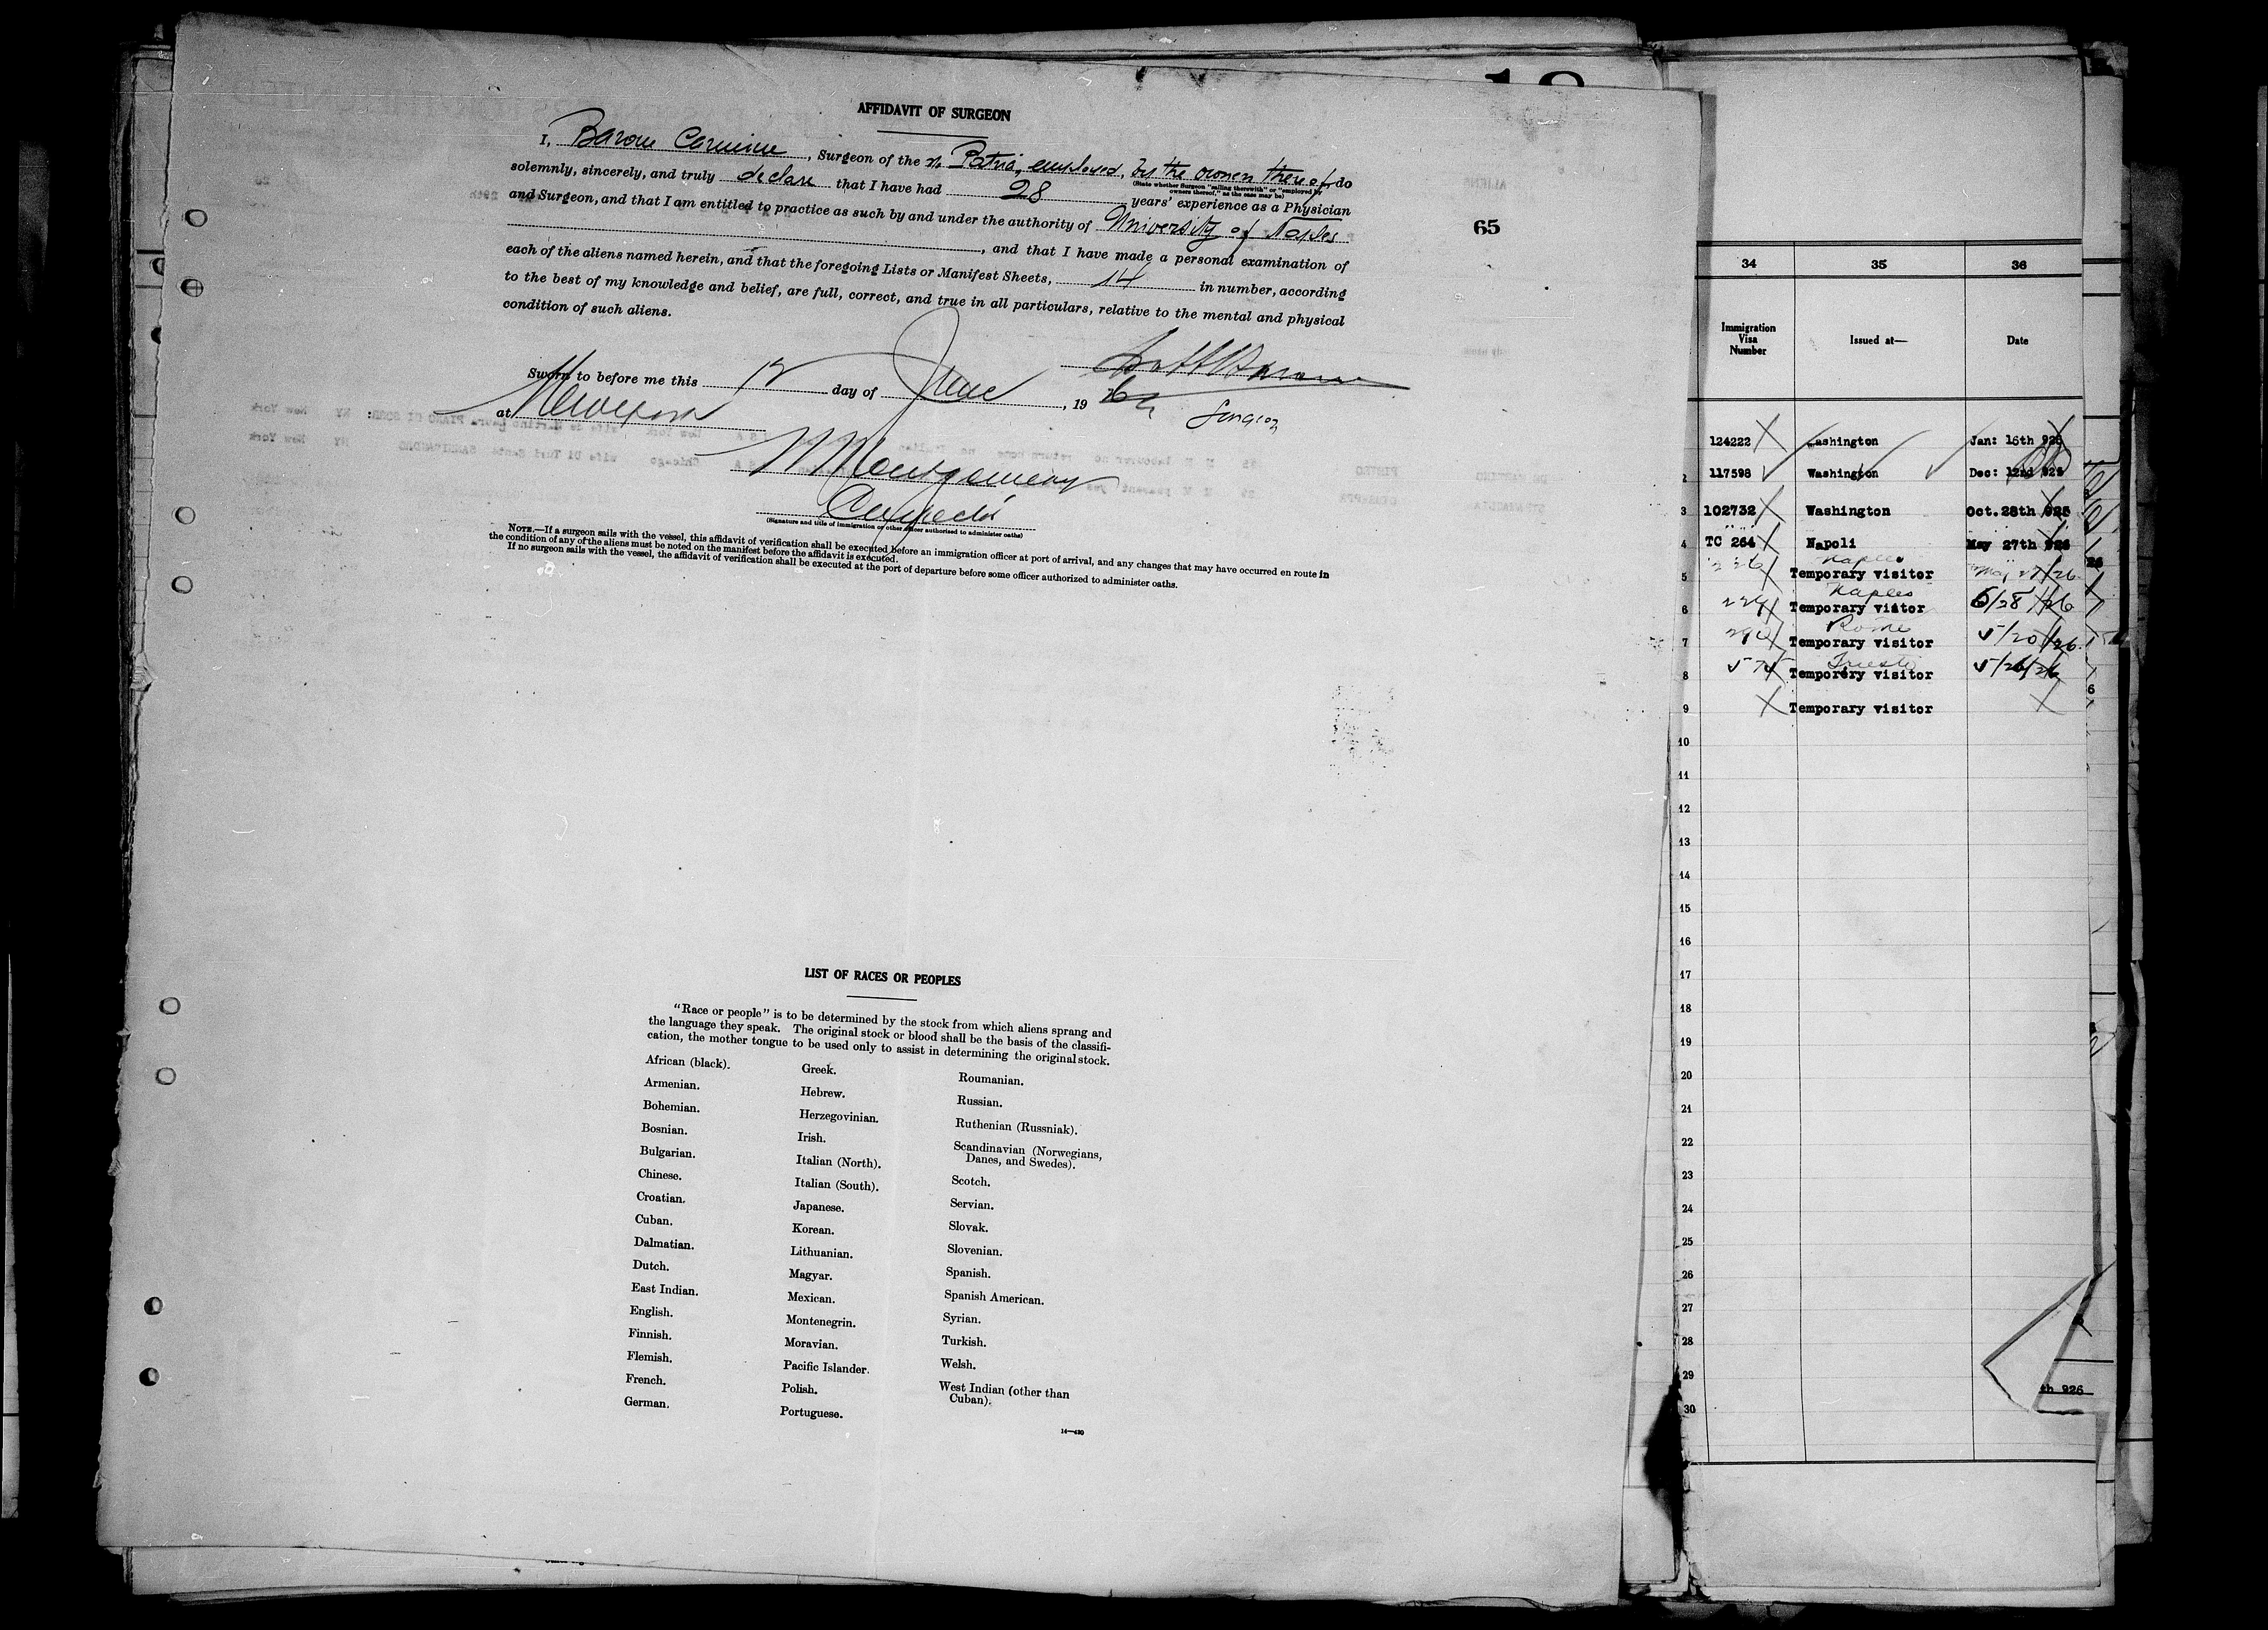 AFFIDAVIT OF SURGEON
I, Barone Carmine, Surgeon of the s/s Patria, employed, by the owners thereof do
(State whether Surgeon "sailing therewith" or "employed by owners thereof," as the case may be)
solemnly, sincerely, and truly declare that I have had 28 years' experience as a Physician
and Surgeon, and that I am entitled to practice as such by and under the authority of University of Naples
, and that I have made a personal examination of
each of the aliens named herein, and that the foregoing Lists or Manifest Sheets, 14 in number, according
to the best of my knowledge and belief, are full, correct, and true in all particulars, relative to the mental and physical
condition of such aliens.
Surgeon
Sworn to before me this 12 day of June, 19
at New York
Montgomery
(Signature and title of immigration or other officer authorized to administer oaths)
NOTE.—If a surgeon sails with the vessel, this affidavit of verification shall be executed before an immigration officer at port of arrival, and any changes that may have occurred en route in
the condition of any of the aliens must be noted on the manifest before the affidavit is executed.
If no surgeon sails with the vessel, the affidavit of verification shall be executed at the port of departure before some officer authorized to administer oaths.
LIST OF RACES OR PEOPLES
"Race or people" is to be determined by the stock from which aliens sprang and
the language they speak. The original stock or blood shall be the basis of the classifi-
cation, the mother tongue to be used only to assist in determining the original stock.
African (black).
Armenian.
Bohemian.
Bosnian.
Bulgarian.
Chinese.
Croatian.
Cuban.
Dalmatian.
Dutch.
East Indian.
English.
Finnish.
Flemish.
French.
German.
Greek.
Hebrew.
Herzegovinian.
Irish.
Italian (North).
Italian (South).
Japanese.
Korean.
Lithuanian.
Magyar.
Mexican.
Montenegrin.
Moravian.
Pacific Islander.
Polish.
Portuguese.
Roumanian.
Russian.
Ruthenian (Russniak).
Scandinavian (Norwegians,
Danes, and Swedes).
Scotch.
Servian.
Slovak.
Slovenian.
Spanish.
Spanish American.
Syrian.
Turkish.
Welsh.
West Indian (other than
Cuban).
14—430
65
34 35 36
Immigration Visa Number Issued at— Date
124222 Washington Jan: 16th 926
2 117598 Washington Dec: 12nd 925
3 102732 Washington Oct. 28th 925
4 TC 264 Napoli May 27th 926
Naples
5 Temporary visitor May 27/26
Naples
6 Temporary visitor 5/28/26
Rome
7 Temporary visitor 5/20/26
Trieste
8 575 Temporary visitor 5/26/26
9 Temporary visitor
10
11
12
13
14
15
16
17
18
19
20
21
22
23
24
25
26
27
28
29
30
th 926